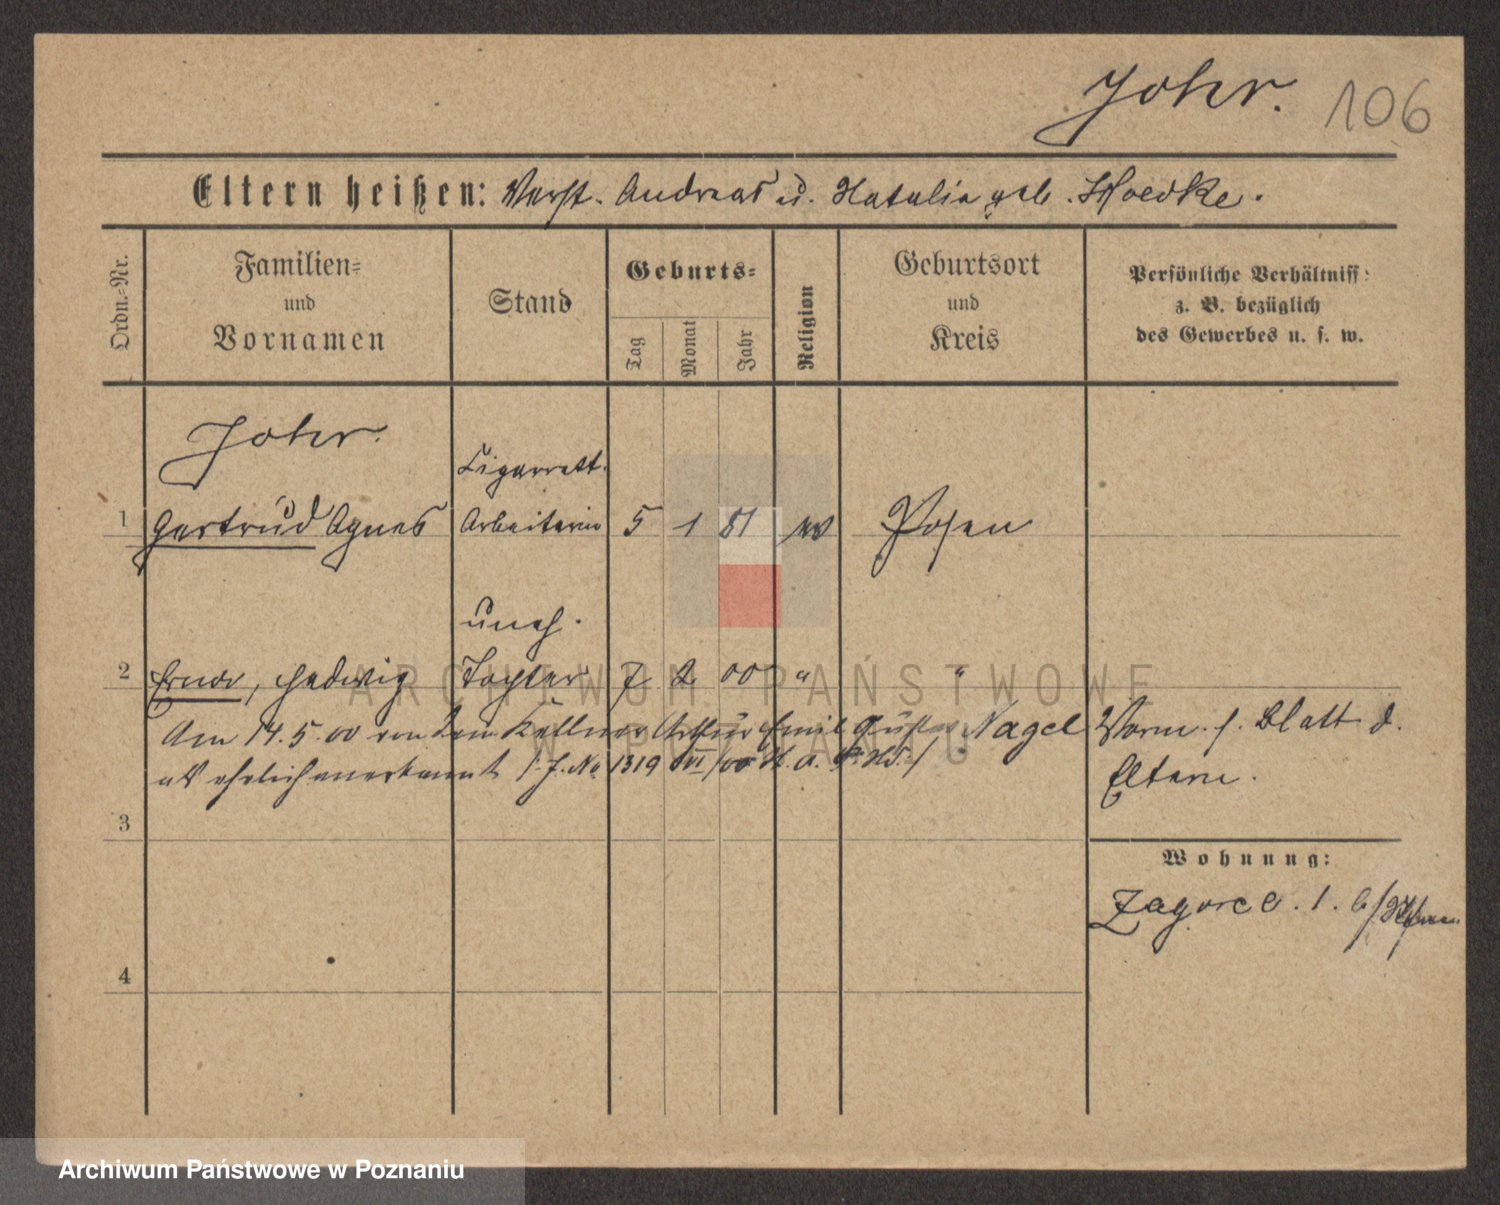 Johr.
106
Eltern heißen: Verst. Andreas u. Natalie geb.
Ordn.-Nr.
Familien-
und
Vornamen
Stand
Geburts-
Tag
Monat
Jahr
Religion
Geburtsort
und
Kreis
Persönliche Verhältniss
z. B. bezüglich
des Gewerbes u. s. w.
Johr.
Cigarrett.
1 Gertrud Agnes Arbeiterin 5 1 81 Posen
uneh.
2 Hedwig Tochter 7 2 00 " "
Am 14.5.00 von dem Kellner Arthur Emil Gustav Nagel
als ehelich anerkannt /: J. No 1319 VI/00
Vorm. s. Blatt d.
Eltern.
3
Wohnung:
Zagorce. 1. b/
4
ARCHIWUM PAŃSTWOWE
W POZNANIU
Archiwum Państwowe w Poznaniu